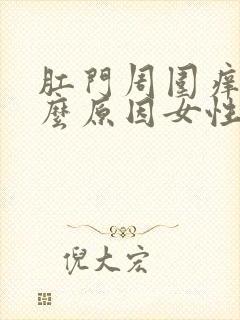 肛門周圍痒
麼原因女性
倪大宏